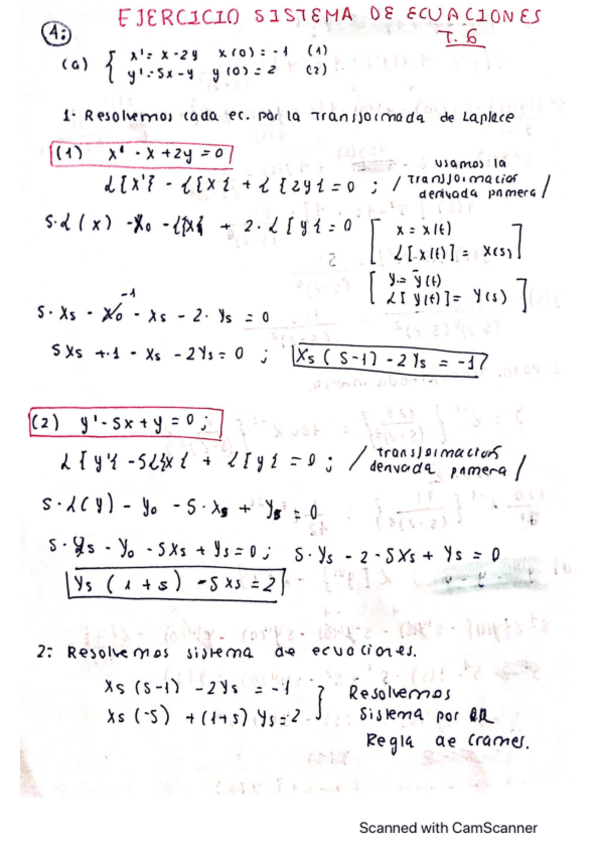 EJERCICIO SISTEMA DE ECUACIONES
T. 6
1:
(a) { x' = x - 2y x(0) = -1 (1)
y' = 5x - y y(0) = 2 (2)
1- Resolvemos cada ec. por la Transformada de Laplace
(1) x' - x + 2y = 0
- usamos la
L{x'} - L{x} + L{2y} = 0 ; / Transformación
derivada primera /
S·L(x) - x0 - L{x} + 2·L{y} = 0 [ x = x(t)
L[x(t)] = X(s) ]
[ y = y(t)
L[y(t)] = Y(s) ]
-1
S·Xs - x0 - Xs - 2·Ys = 0
SXs + 1 - Xs - 2Ys = 0 ; Xs (S-1) - 2Ys = -1
(2) y' - 5x + y = 0 ;
L{y'} - 5L{x} + L{y} = 0 ; / transformación
derivada primera /
S·L(y) - y0 - 5·Xs + Ys = 0
S·Ys - y0 - 5Xs + Ys = 0 ; S·Ys - 2 - 5Xs + Ys = 0
Ys (1+s) - 5Xs = 2
2: Resolvemos sistema de ecuaciones.
Xs (S-1) - 2Ys = -1 } Resolvemos
Xs (-5) + (1+s) Ys = 2 sistema por
Regla de Cramer.
Scanned with CamScanner